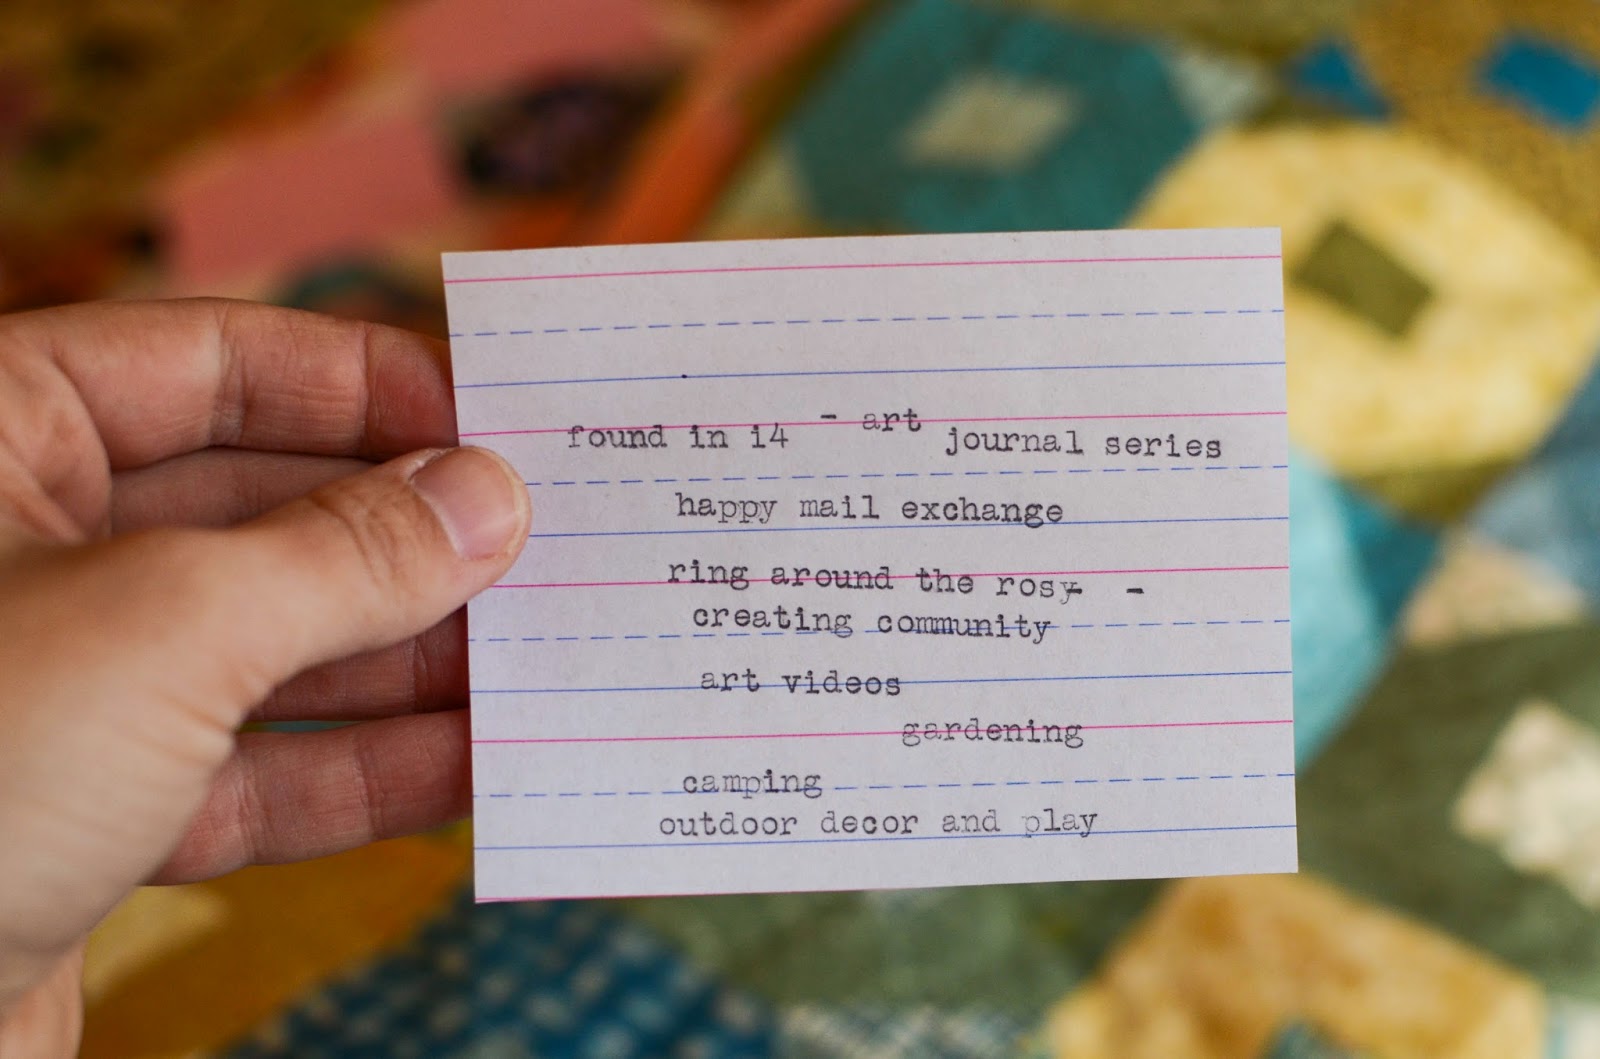 found in i4 - art journal series
happy mail exchange
ring around the rosy -
creating community
art videos
gardening
camping
outdoor decor and play